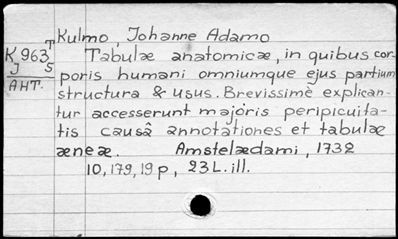 Kulmo, Johanne Adamo
K 963 T Tabulæ anatomicæ, in quibus cor-
J S poris humani omniumque ejus partium
AHT. structura & usus. Brevissimè explican-
tur accesserunt majóris peripicuita-
tis causâ annotationes et tabulæ
æneæ. Amstelædami, 1732
10, 179, 19 p, 23 L. ill.